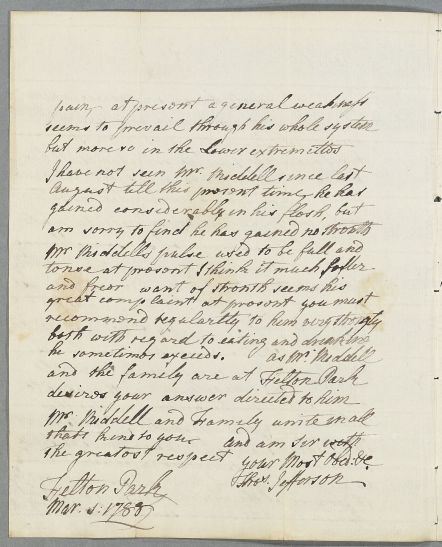 pain, at present a general weakness
seems to prevail through his whole system
but more so in the Lower extremettes
I have not seen Mr. Riddell since last
August till this present time, he has
gained considerably in his flesh, but
am sorry to find he has gained no stronth
Mr Riddells pulse used to be full and
tense at present I think it much softer
and freer want of stronth seems his
great complaint at present you must
recommend regularity to him very strongly
both with regard to eating and drinking
he sometimes exceeds. as Mr Riddell
and the family are at Felton Park
desires your answer directed to him
Mr. Riddell and Family unite in all
thats kind to you and am Sir with
the greatest respect your Most Obd. &c
Thos. Jefferson
Felton Park
Mar. 1788